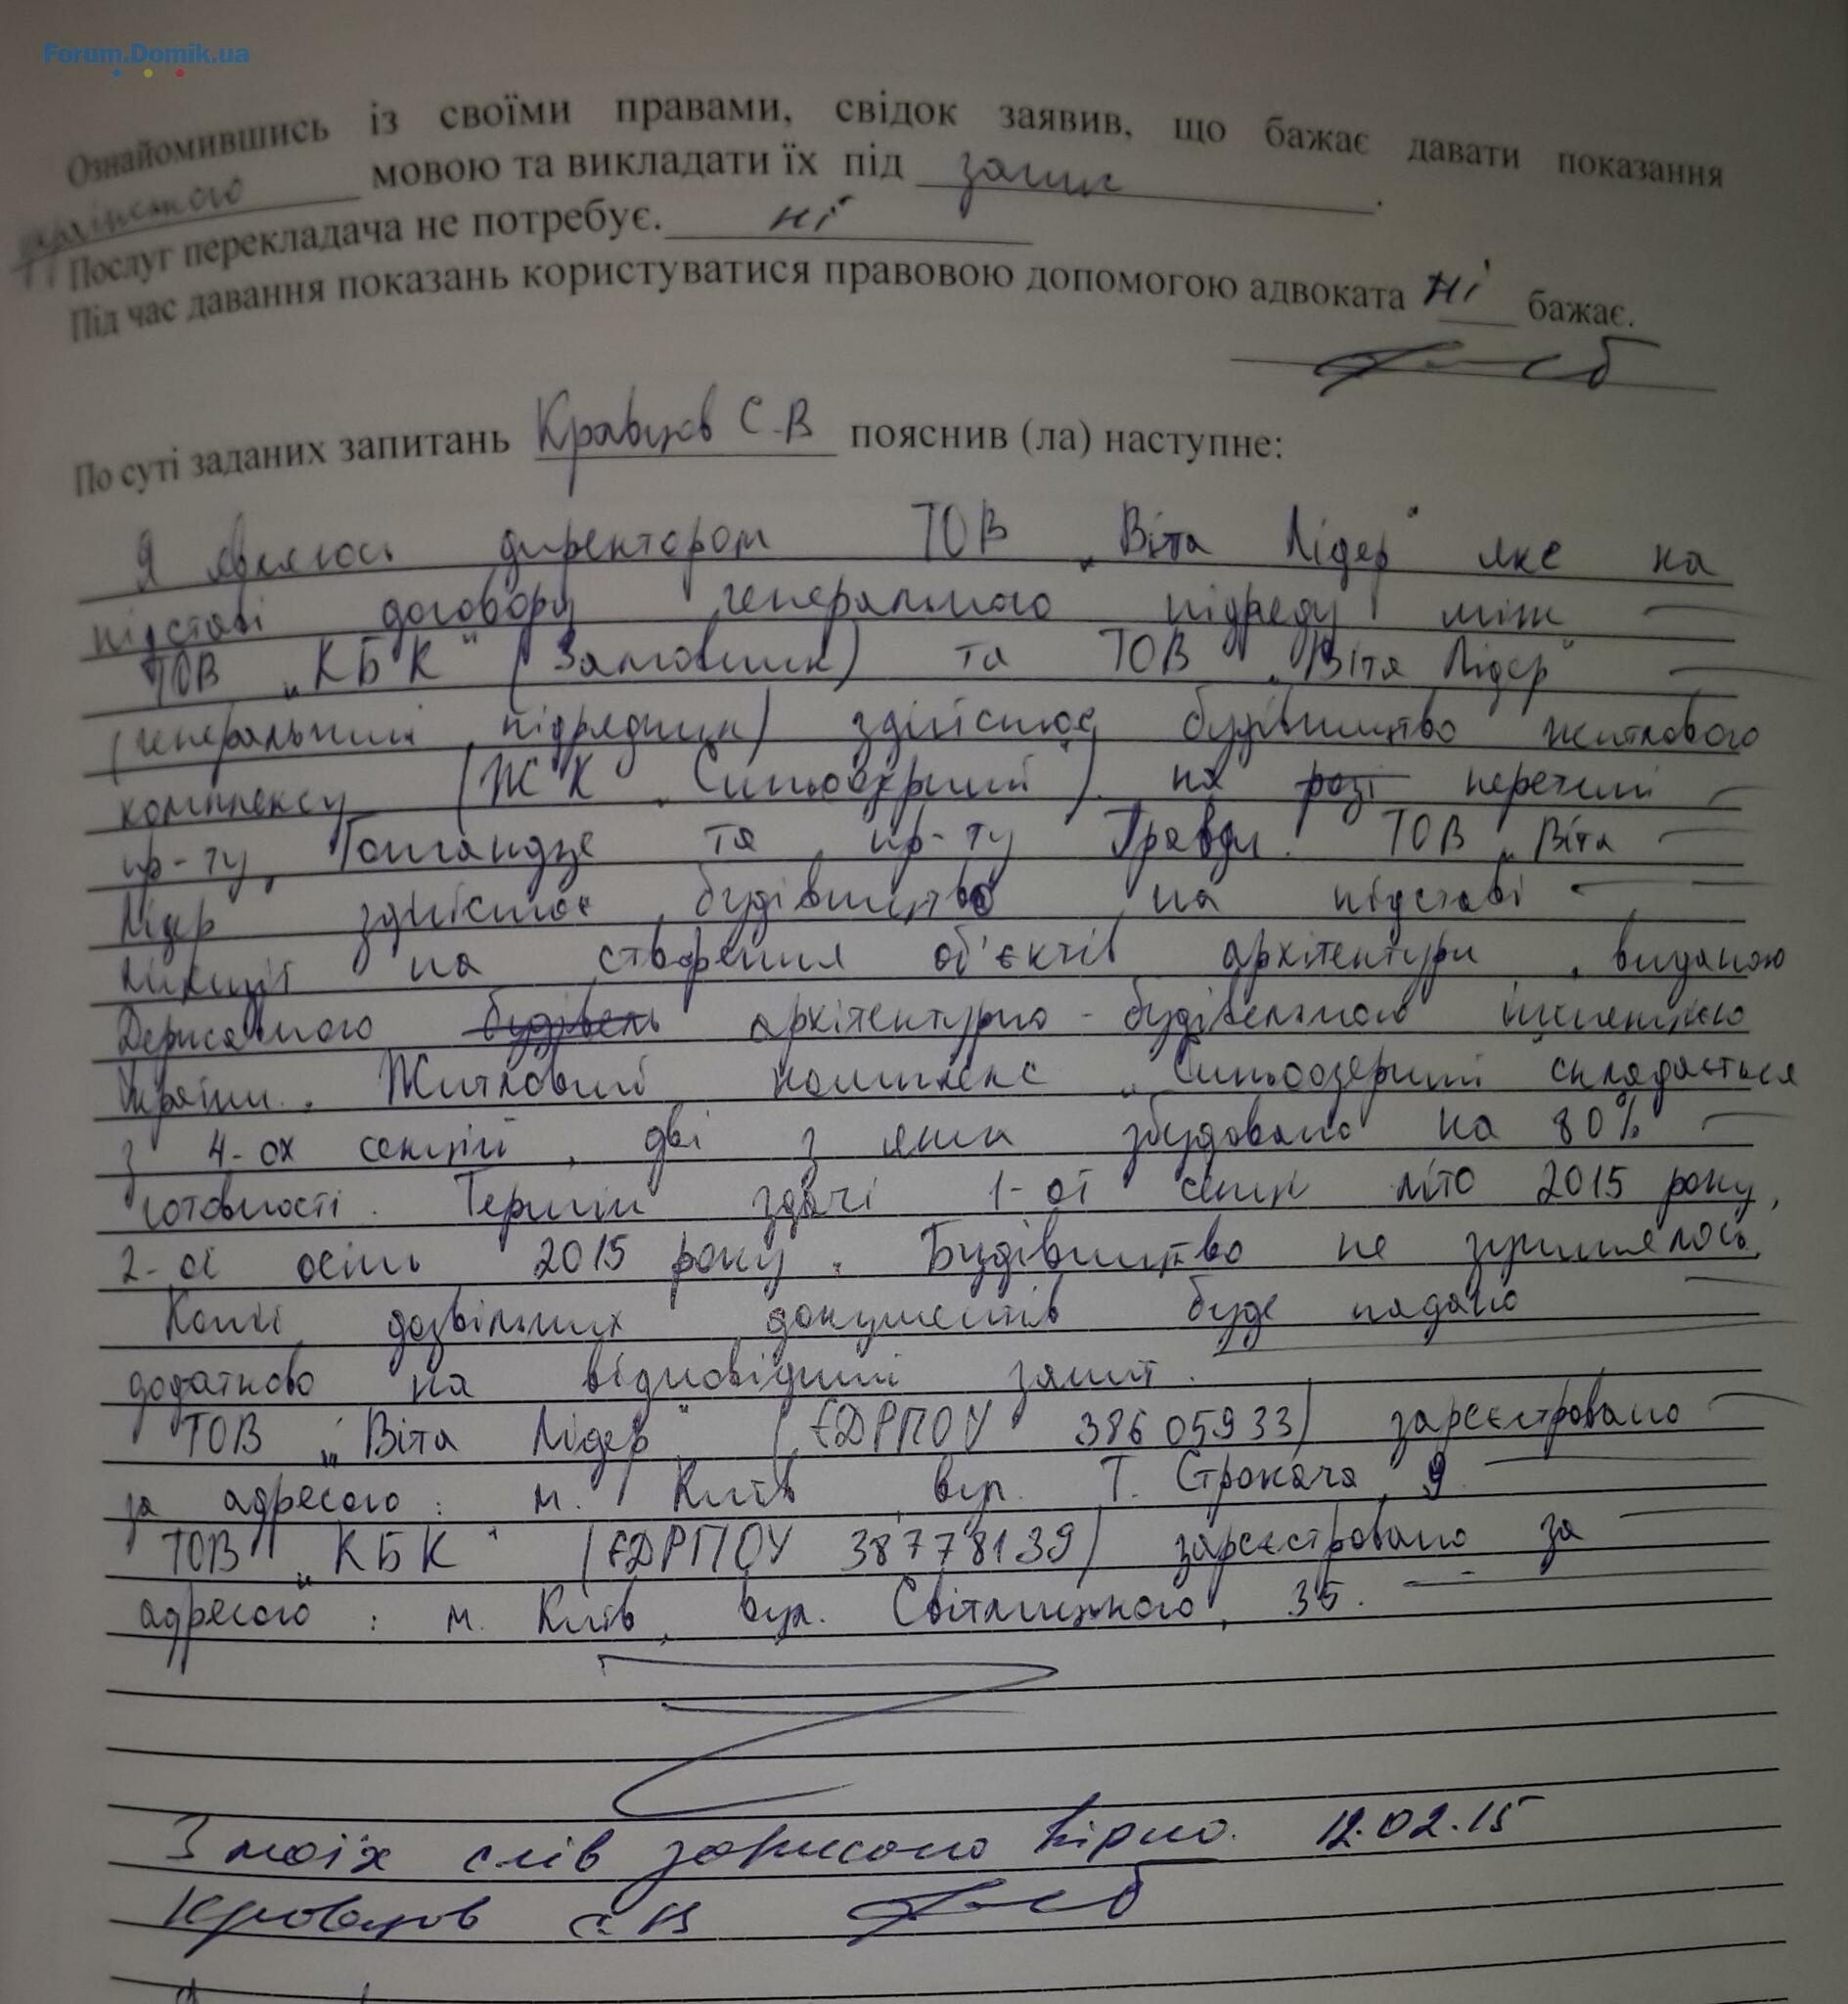 Forum.Domik.ua
Ознайомившись із своїми правами, свідок заявив, що бажає давати показання
українською мовою та викладати їх під запис.
Послуг перекладача не потребує. ні
Під час давання показань користуватися правовою допомогою адвоката ні бажає.
По суті заданих запитань Кравцов С.В пояснив (ла) наступне:
Я являюсь директором ТОВ „Віта Лідер" яке на
підставі договору генерального підряду між
ТОВ „КБК" (Замовник) та ТОВ „Віта Лідер"
(генеральний підрядник) здійснює будівництво житлового
комплексу (ЖК „Синьоозерний") на розі перетині
пр-ту Гонгадзе та пр-ту Правди. ТОВ „Віта
Лідер" здійснює будівництво на підставі
ліцензії на створення об'єктів архітектури, виданою
Державною будівель архітектурно-будівельною інспекцією
України. Житловий комплекс „Синьоозерний складається
з 4-ох секцій, дві з яких збудовано на 80%
готовності. Термін здачі 1-ої секції літо 2015 року,
2-ої осінь 2015 року. Будівництво не зупинялось.
Копії дозвільних документів буде надано
додатково на відповідний запит.
ТОВ „Віта Лідер" (ЄДРПОУ 38605933) зареєстровано
за адресою: м. Київ, вул. Т. Строкача, 9.
ТОВ „КБК" (ЄДРПОУ 38778139) зареєстровано за
адресою: м. Київ, вул. Світлицького, 35.
З моїх слів записано вірно. 12.02.15
Кравцов С.В